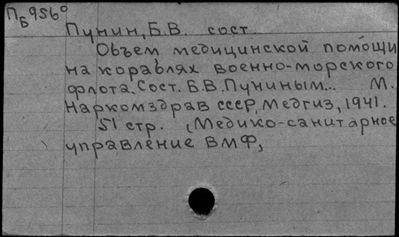 ПБ9560
Пунин, Б.В. сост.
Объем медицинской помощи
на кораблях военно-морского
флота. Сост. Б.В. Пуниным... М.
Наркомздрав СССР, Медгиз, 1941.
51 стр. (Медико-санитарное
управление ВМФ,